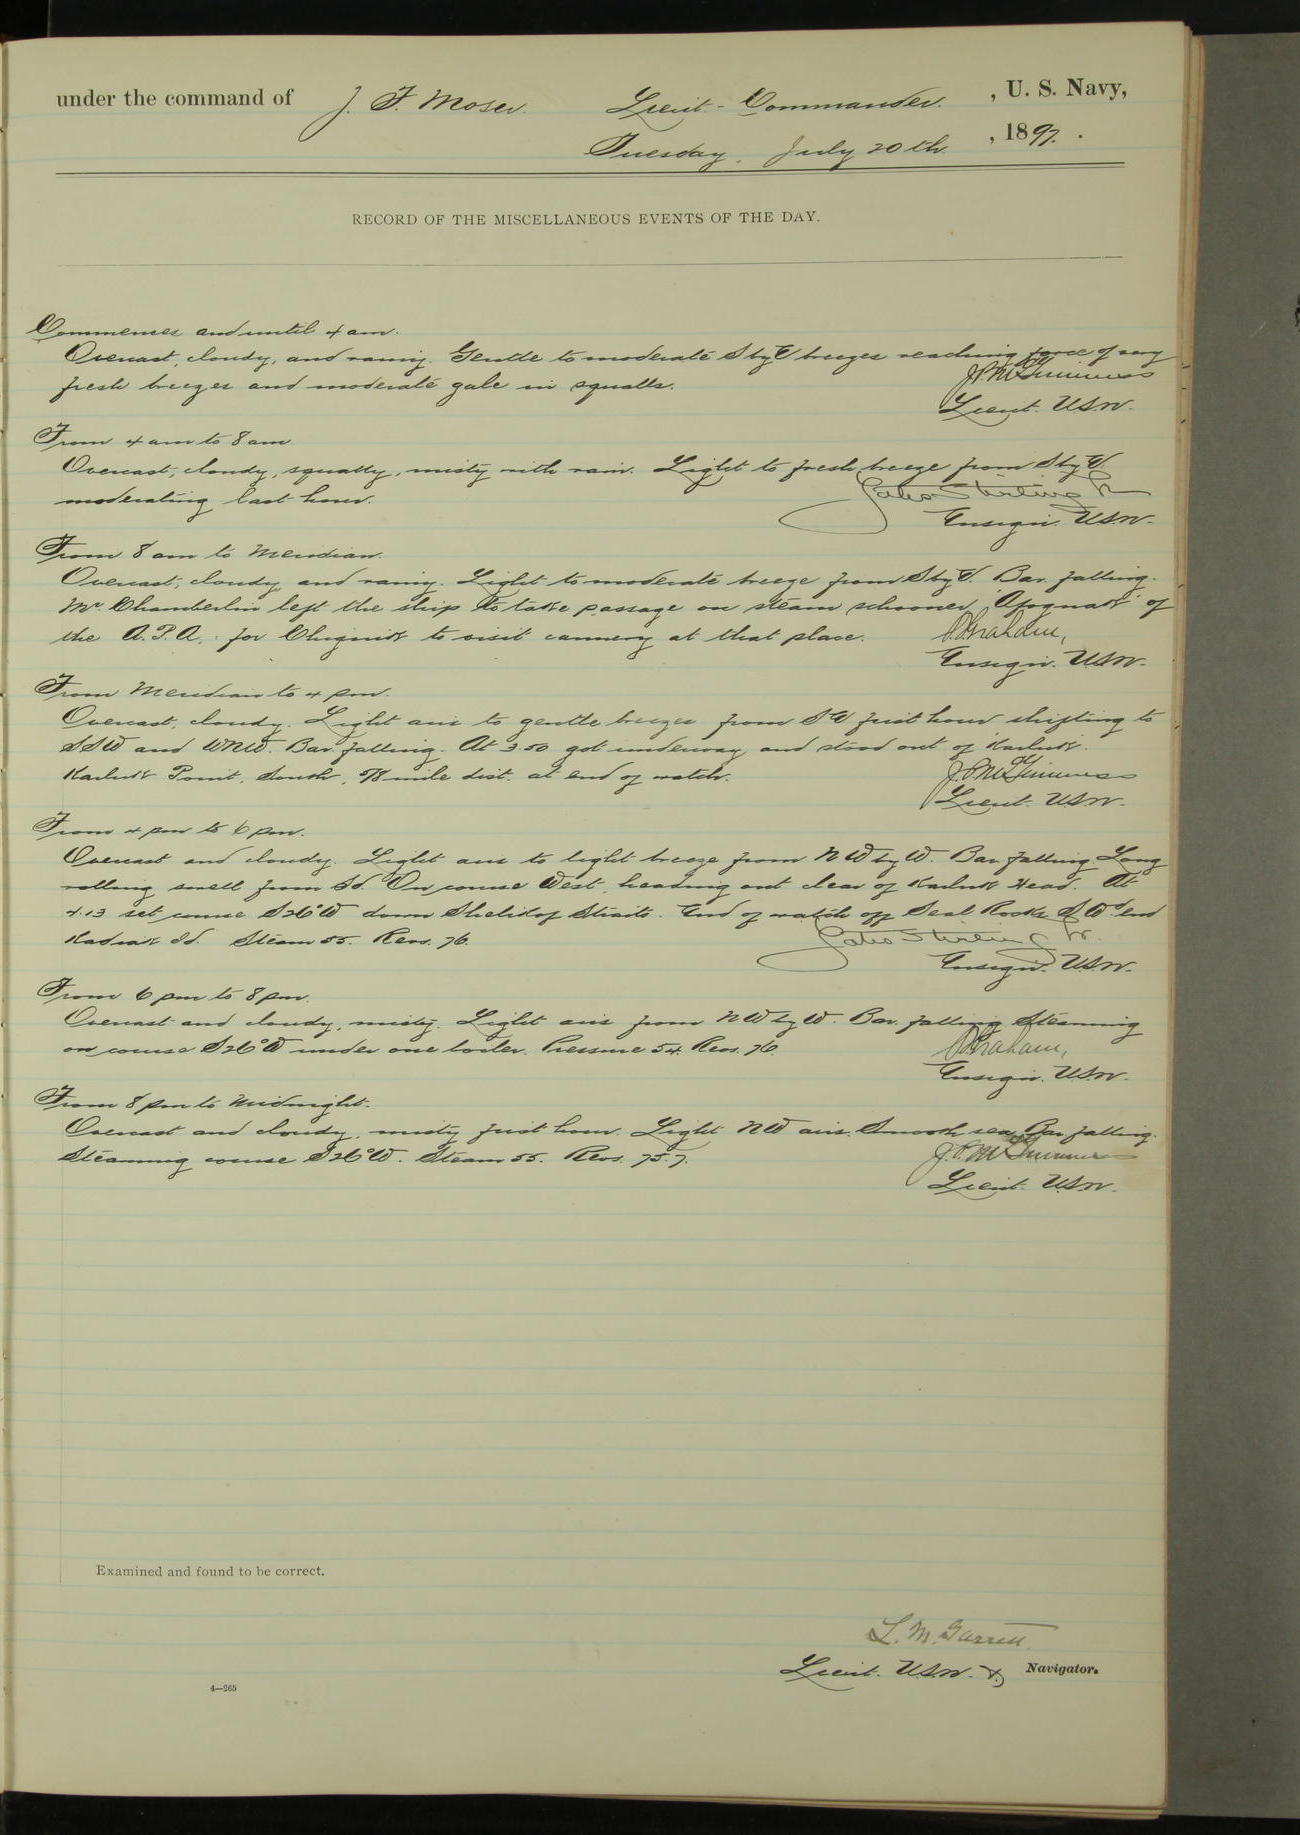 under the command of J. F. Moser. Lieut.-Commander. , U. S. Navy,
Tuesday, July 20th , 1897.
RECORD OF THE MISCELLANEOUS EVENTS OF THE DAY.
Commences and until 4 am.
Overcast, cloudy, and rainy. Gentle to moderate S by E breezes reaching force of very
fresh breezes and moderate gale in squalls.
J. P. McGuinness
Lieut. U.S.N.
From 4 am to 8 am.
Overcast, cloudy, squally, misty with rain. Light to fresh breeze from S by E.
moderating last hour.
Yates Stirling Jr
Ensign. U.S.N.
From 8 am to Meridian.
Overcast, cloudy and rainy. Light to moderate breeze from S by E. Bar. falling.
Mr Chamberlin left the ship to take passage on steam schooner "Afognak" of
the A.P.A. for Chignik to visit cannery at that place.
Graham,
Ensign. U.S.N.
From Meridian to 4 pm.
Overcast, cloudy. Light airs to gentle breezes from SE first hour shifting to
SSW and WNW. Bar. falling. At 3.50 got underway and stood out of Karluk.
Karluk Point, South, 5/8 mile dist. at end of watch.
J. P. McGuinness
Lieut. U.S.N.
From 4 pm to 6 pm.
Overcast and cloudy. Light airs to light breeze from NW by W. Bar. falling. Long
rolling swell from Sd. On course West, heading out clear of Karluk Head. At
4.13 set course S 26° W down Shelikof Straits. End of watch off Seal Rocks SWd end
Kadiak Id. Steam 55. Revs. 76.
Yates Stirling Jr.
Ensign. U.S.N.
From 6 pm to 8 pm.
Overcast and cloudy, misty. Light airs from NW by W. Bar. falling. Steaming
on course S 26° W under one boiler. Pressure 54. Revs. 76.
Graham,
Ensign. U.S.N.
From 8 pm to Midnight.
Overcast and cloudy, misty first hour. Light NW airs. Smooth sea. Bar. falling.
Steaming course S 26° W. Steam 55. Revs. 75.7.
J. P. McGuinness
Lieut. U.S.N.
Examined and found to be correct.
L. M. Garrett
Lieut. U.S.N. & Navigator.
4—265